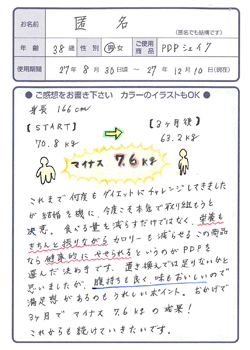 お名前 匿名
(匿名でも結構です)
年齢 38歳 性別 男・女 ご使用商品 PDPシェイク
使用期間 27年8月30日頃 ～ 27年12月10日(現在)
●ご感想をお書き下さい カラーのイラストもOK●
身長 166cm
【START】 ⇒ 【3ヶ月後】
70.8kg 63.2kg
マイナス 7.6kg
これまで何度もダイエットにチャレンジしてきました
が結婚を機に、今度こそ本気で取り組もうと
決意。食べる量を減らすだけではなく、栄養も
きちんと摂りながらカロリーも減らせるこの商品
なら健康的にやせられるというのがPDPを
選んだ決め手です。置き換えでは足りないかと
思いましたが、腹持ちも良く、味もおいしいので
満足感があるのもうれしいポイント。おかげで
3ヶ月でマイナス7.6kgの成果!
これからも続けていきたいです。